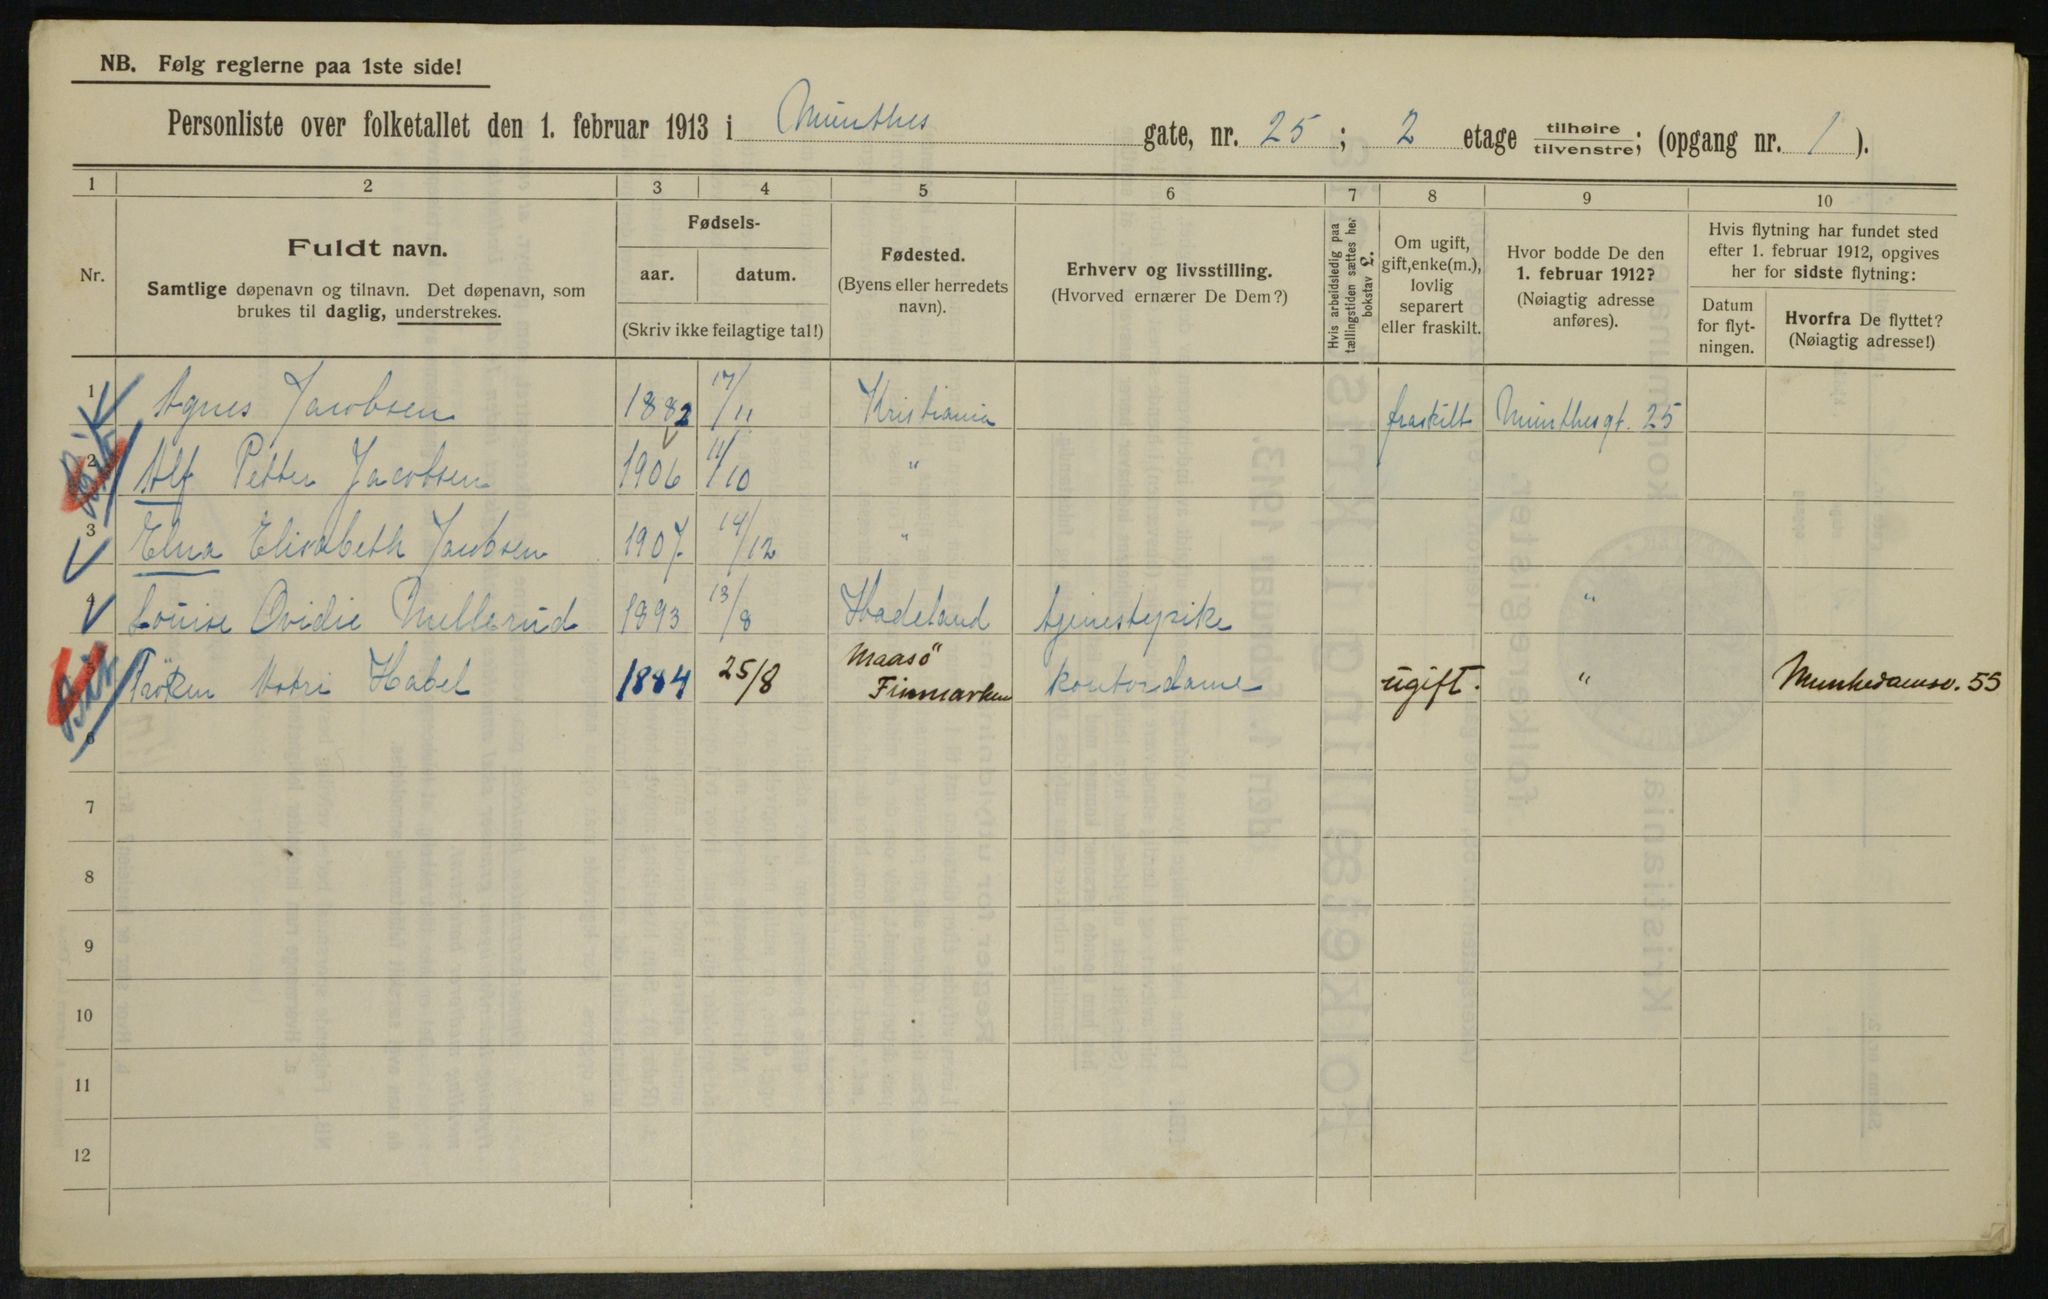 NB. Følg reglerne paa 1ste side!
Personliste over folketallet den 1. februar 1913 i Munthes gate, nr. 25; 2 etage tilhøire/tilvenstre; (opgang nr. 1).
1 2 3 4 5 6 7 8 9 10
Nr.
Fuldt navn.
Samtlige døpenavn og tilnavn. Det døpenavn, som
brukes til daglig, understrekes.
Fødsels-
aar. datum.
(Skriv ikke feilagtige tal!)
Fødested.
(Byens eller herredets
navn).
Erhverv og livsstilling.
(Hvorved ernærer De Dem?)
Hvis arbeidsledig paa
tællingstiden sættes her
bokstav L.
Om ugift,
gift, enke(m.),
lovlig
separert
eller fraskilt.
Hvor bodde De den
1. februar 1912?
(Nøiagtig adresse
anføres).
Hvis flytning har fundet sted
efter 1. februar 1912, opgives
her for sidste flytning:
Datum
for flyt-
ningen.
Hvorfra De flyttet?
(Nøiagtig adresse!)
1 Agnes Jacobsen 1882 17/11 Kristiania fraskilt Munthesgt. 25
2 Alf Petter Jacobsen 1906 11/10 "
3 Elna Elisabeth Jacobsen 1907. 14/12 "
4 Louise Ovidie Mellerud 1893 13/8 Hadeland tjenestepike "
5 Habel 1884 25/8 Maasö Finmarken kontordame ugift. " Munkedamsv. 55
6
7
8
9
10
11
12